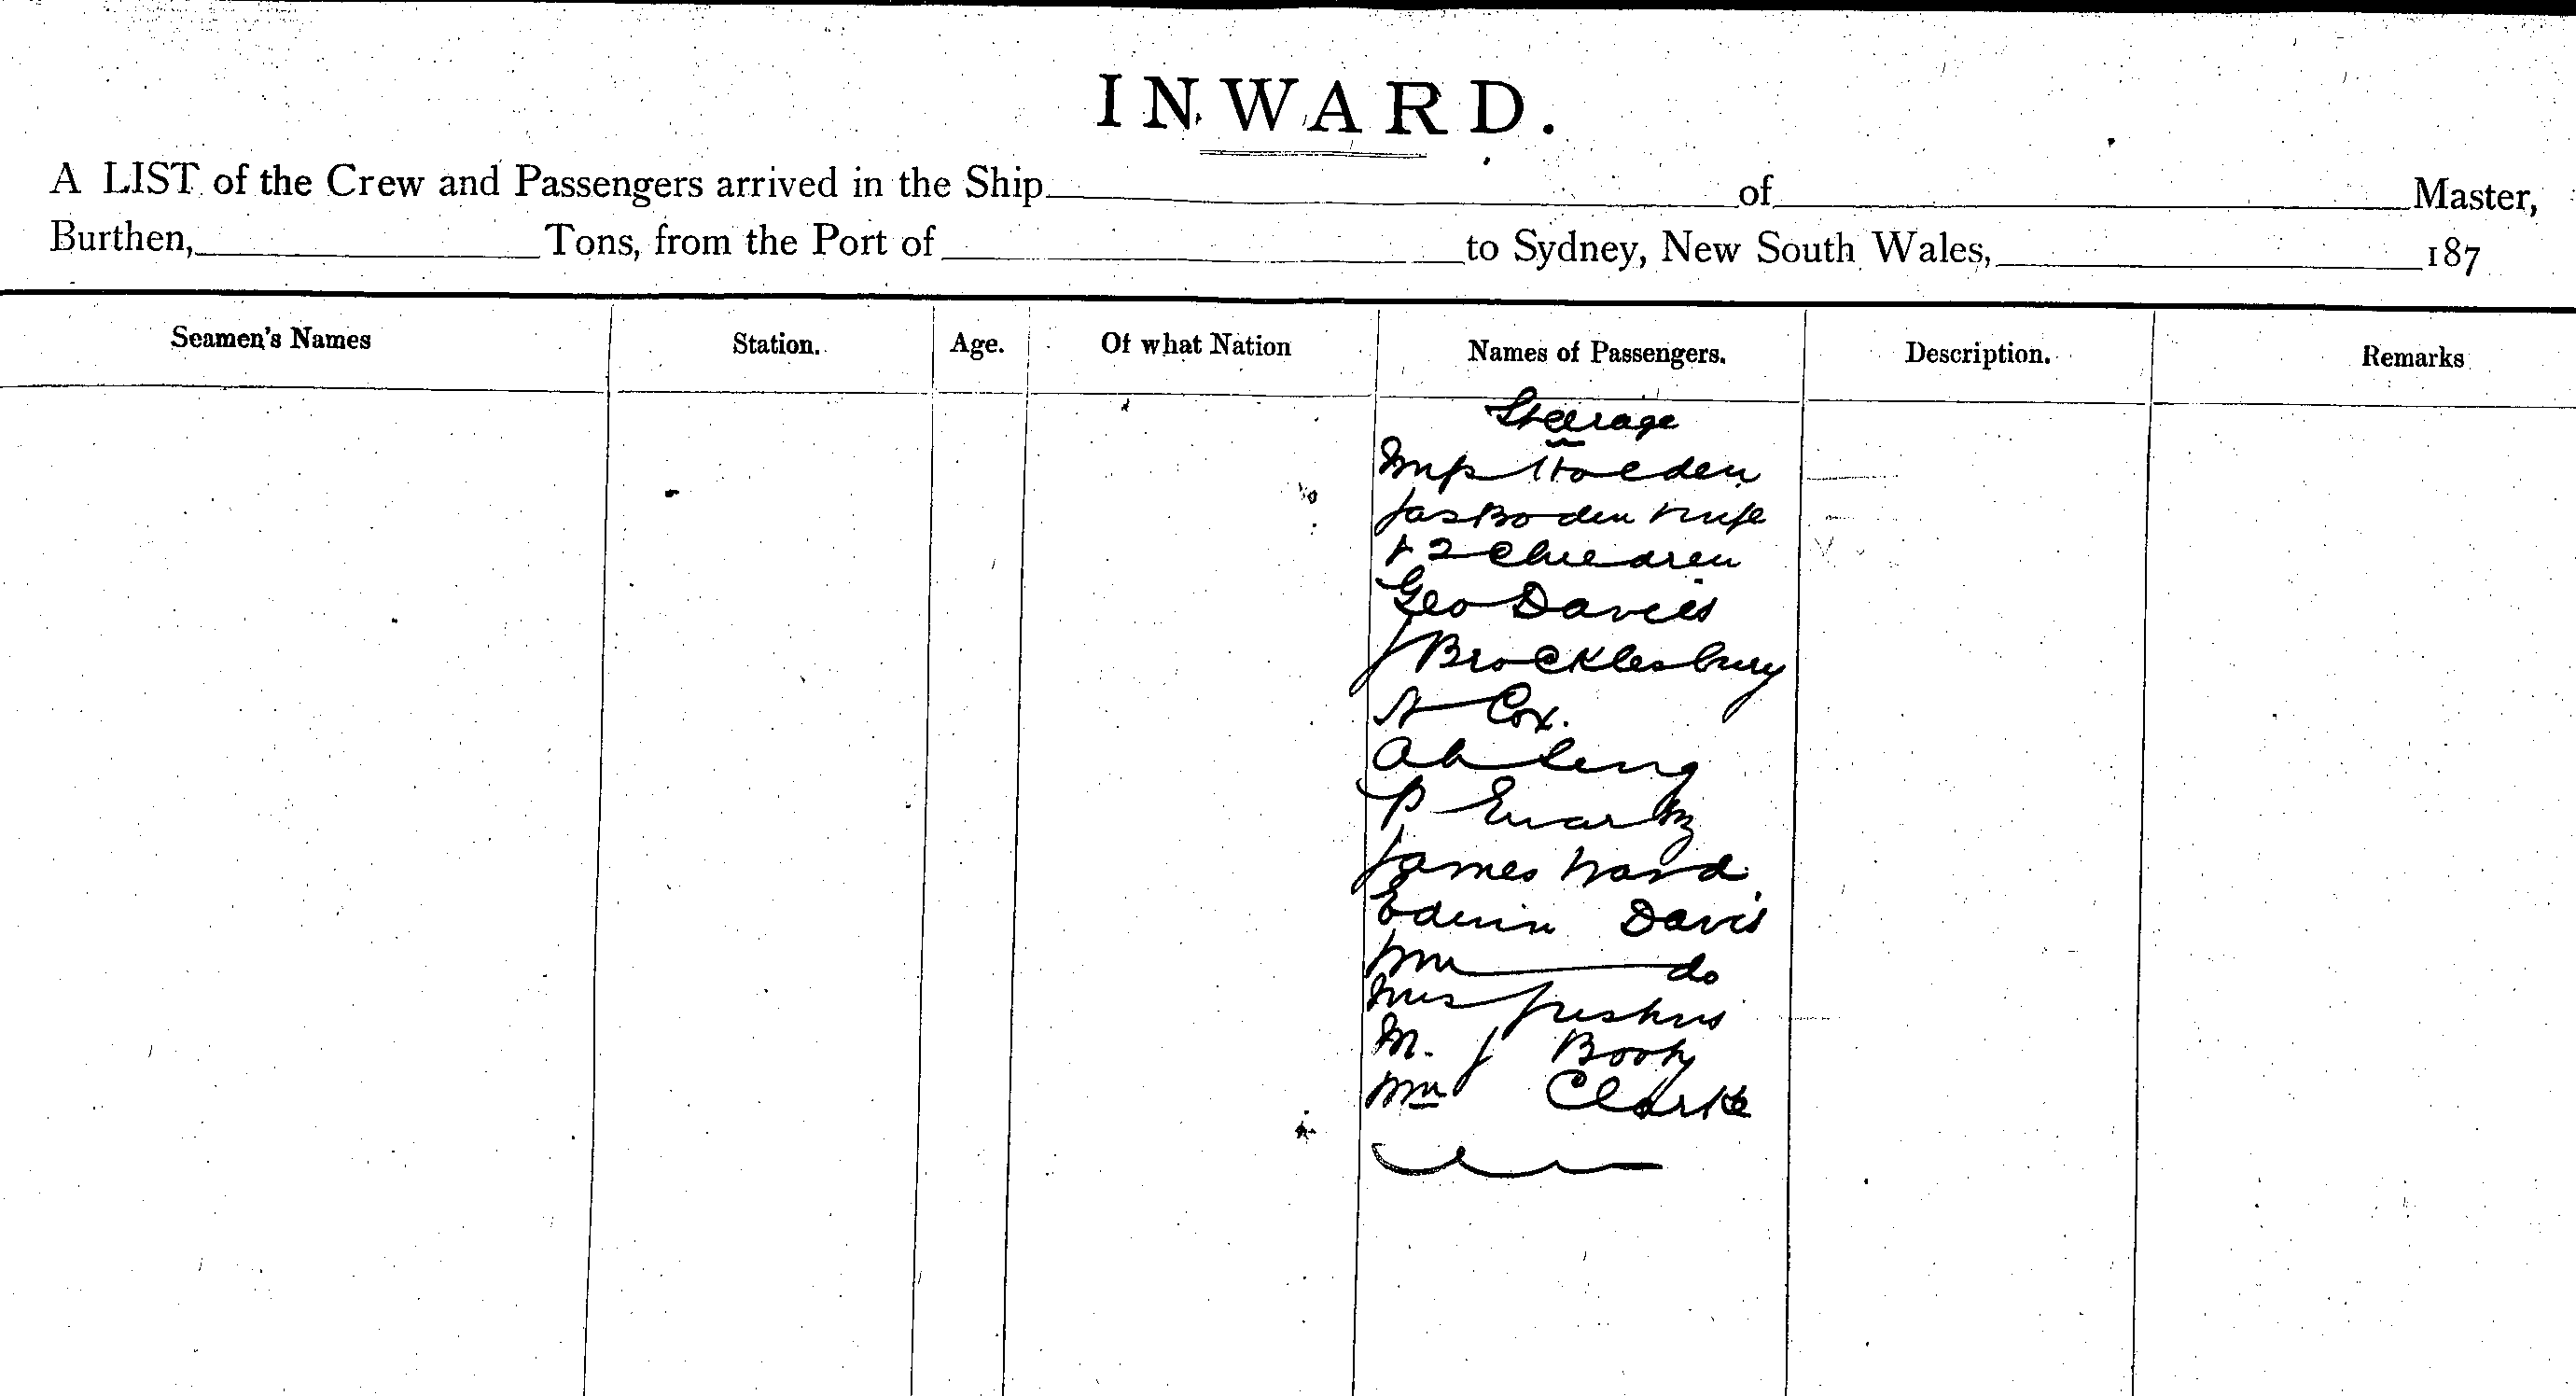 INWARD.
A LIST of the Crew and Passengers arrived in the Ship of Master,
Burthen, Tons, from the Port of to Sydney, New South Wales, 187
Seamen's Names Station. Age. Of what Nation Names of Passengers. Description. Remarks
Steerage
Holden
Jas Boden wife
+ 2 Children
Geo Davies
J Brocklesbury
Cox.
Ah
P
James Ward
Edwin Davis
Wm do
Mrs
M. J
Wm Clarke